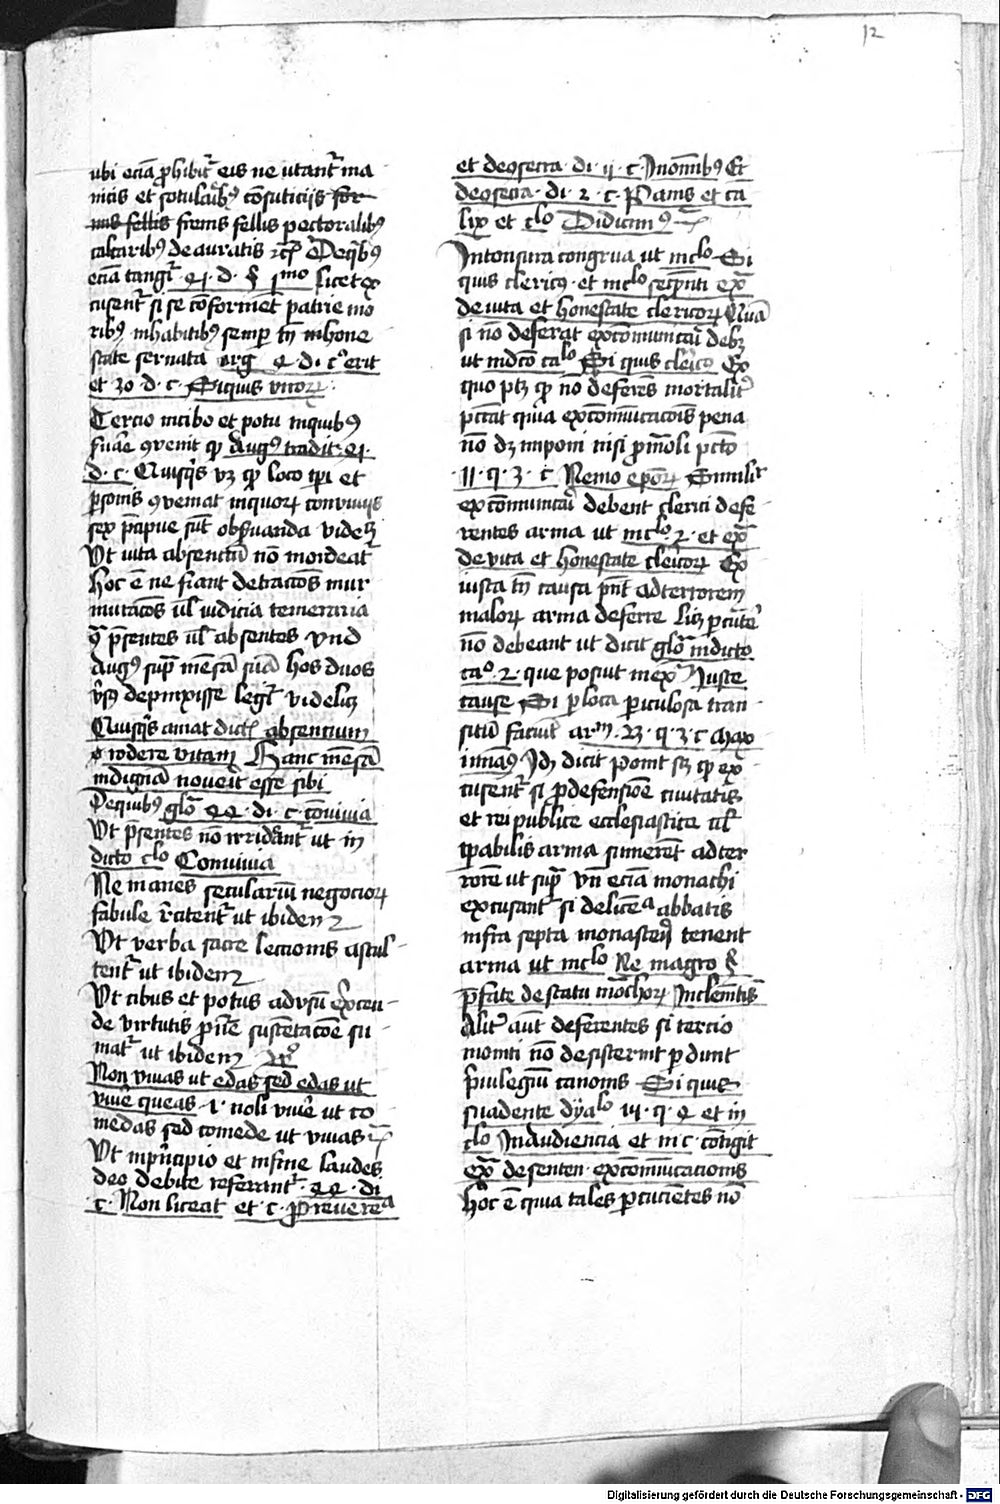 12
ubi eciā ꝓhibit᷑ eis ne utant᷑ ma
nicis et sotularibꝰ cōsuticijs for
mis sellis frenis sellis pectoralibꝰ
calcaribꝰ deauratis Deqͥbꝰ
eciā tangit᷑ 41 d. § imo licet ex
cusent᷑ si se cōformēt patrie mo
ribꝰ inhabitibꝰ semꝑ tn̄ inhone
state seruata arg̅ 4 d. c erit
et 30 d. c. Siquis viroꝝ
Tercio incibo et potu inquibꝰ
ẜuare ꝯuenit ꝙ Augꝰ tradit 41
d. c. Quisqͥs vꝫ ꝙ loco tꝑi et
ꝑsonis ꝯueniat inquoꝝ conuiuijs
sex p̄cipue sūt obẜuanda videlꝫ
Vt uita absenciū nō mordeat᷑
hoc ē ne fiant detractōes mur
muracōes ul̄ iudicia temeraria
p̄sentes ul̄ absentes Vnd
Augꝰ suꝑ mēsā suā hos duos
v̄sꝰ depinxisse legit᷑ videlicꝫ
Quisqͥs amat dictis absencium
rodere vitam Hanc mēsā
indignā nouerit esse sibi
Dequibꝰ glō 44 di. c cōuiuia
Vt p̄sentes nō irridēant᷑ ut in
dicto clo Conuiuia
Ne inanes seculariū negocioꝝ
fabule r̄citent᷑ ut ibidem
Vt verba sacre lectionis ascul-
tent᷑ ut ibidem
Vt cibus et potus adusū exercen-
de virtutis sustentacōe su
mat᷑ ut ibidem
Non viuas ut edas sed edas ut
viuē queas .i. noli viuē ut co
medas sed comede ut viuas
Vt inprīcipio et infine laudes
deo debite referant᷑ 44 di
c. Non liceat et c. Preuerea
et decōsecra di. ii. c. Inoīnibꝰ Et
decōsecra di. 2 c. Panis et ca
lix et clo Didicimꝰ
Intonsura congrua ut in clo Si
quis clericꝰ et in clo sequēti ex͞
de uita et honestate clericoꝝ Quā
si nō deferat excōmunicari debꝫ
ut indcō calo Si quis clericꝰ Ex
quo ptꝫ ꝙ nō deferēs mortalit᷑
peccat quia excōmunicacōis pena
nō dꝫ imponi nisi ꝓ mortali pctō
.11. q. 3. c Nemo epōꝝ Similit᷑
excōmunicari debent clerici defe-
rentes arma ut in clo 2. et ex͞
de vita et honestate clericoꝝ Ex
iusta tn̄ causa pn̄t adterrorem
maloꝝ arma deferre licꝫ ꝑcutē
nō debeant ut dicit glō indicto
cao. 2. que posiut mex͞ Iuste
cause Si ꝑ loca ꝑiculosa tran-
situ faciūt arm. 23. q. 3. c Max
imiāꝰ Idē dicit point sꝫ ꝙ ex
cusent᷑ si ꝓ defensione ciuitatis
et rei publice ecclesiastice ul̄
tꝑalis arma sumerēt adter
rorē ut supra Vn̄ eciā monachi
excusant᷑ si delicēa abbatis
infra septa monasterij tenent
arma ut in clo Ne in agro §
p̄fate de statu monachoꝝ Inclemētis
Alit᷑ aūt deferentes si tercio
moniti nō desisterint ꝑdunt
p̄uilegiū canonis Si quis
suadente dyalo 17. q. 4 et in
clo Inaudiencia et in c. cōtigit
ex͞ de senten. excōmunicationis
hoc ē quia tales ꝑcucientes nō
Digitalisierung gefördert durch die Deutsche Forschungsgemeinschaft - DFG